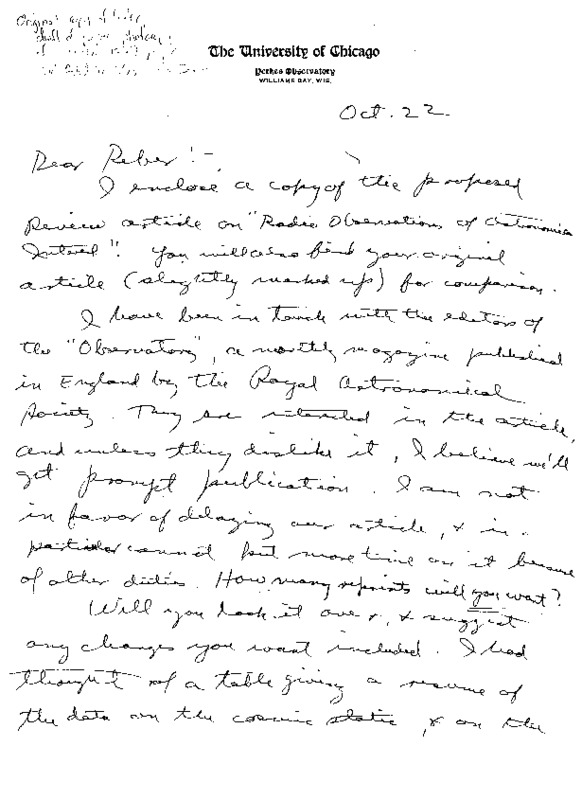 Original
The University of Chicago
Yerkes Observatory
WILLIAMS BAY, WIS.
Oct. 22.
Dear Reber:-
I enclose a copy of the proposed
Review article on "Radio Observations of Astronomical
Interest". You will also find your original
article (slightly marked up) for comparison.
I have been in touch with the editors of
the "Observatory", a monthly magazine published
in England by the Royal Astronomical
Society. They are interested in the article,
and unless they dislike it, I believe we'll
get prompt publication. I am not
in favor of delaying our article, & in
particular cannot put more time on it because
of other duties. How many reprints will you want?
Will you look it over, & suggest
any changes you want included. I had
thought of a table giving a resume of
the data on the cosmic static, & on the